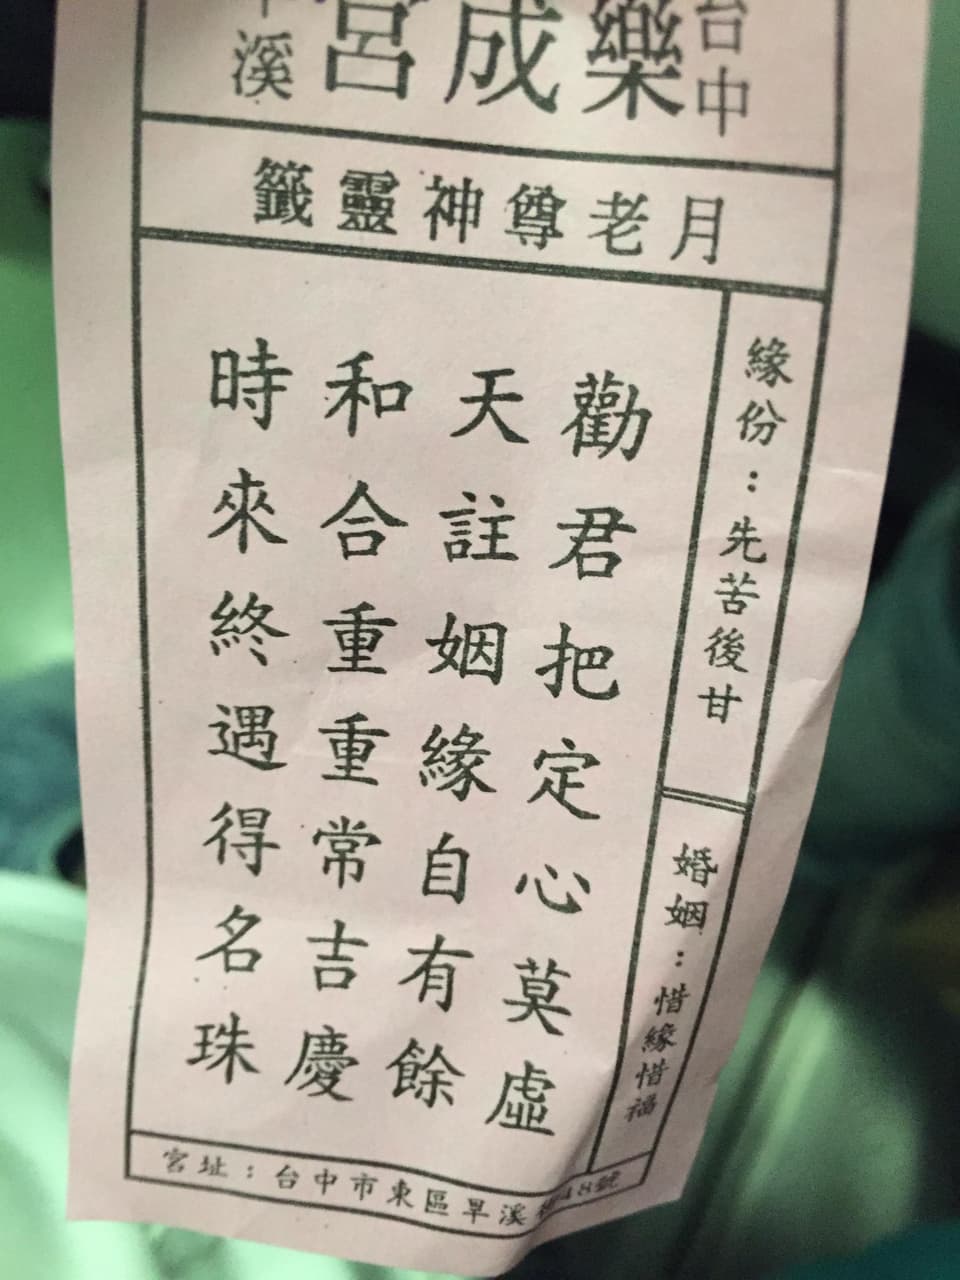 台中
樂成宮
旱溪
月老尊神靈籤
緣份：先苦後甘
婚姻：惜緣惜福
勸君把定心莫虛
天註姻緣自有餘
和合重重常吉慶
時來終遇得名珠
宮址：台中市東區旱溪街48號